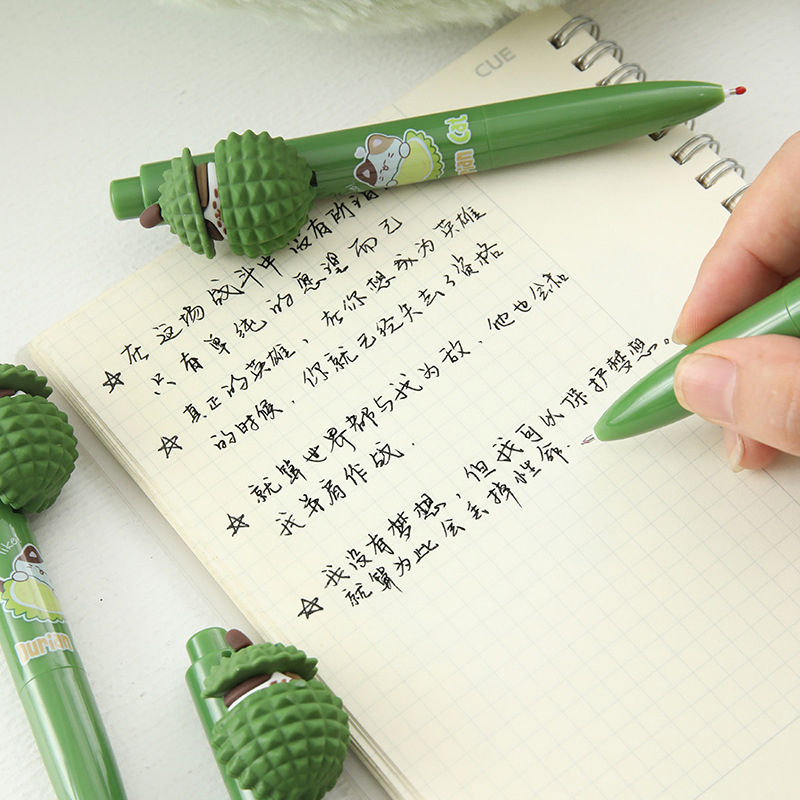 CUE
在这场战斗中没有所谓
只有单纯的愿望而已
☆ 真正的英雄，在你想成为英雄
的时候，你就已经失去了资格
☆ 就算世界都与我为敌，他也会和
我并肩作战．
☆ 我没有梦想，但我可以保护梦想。
就算为此会丢掉性命．
like!
Durian